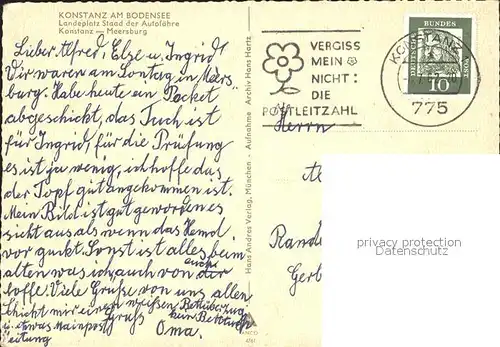 KONSTANZ AM BODENSEE
Landeplatz Staad der Autofähre
Konstanz — Meersburg
Lieber Alfred, Else u. Ingrid
Wir waren am Sontag in Meers
burg. Habe heute ein Packet
abgeschickt, das Tuch ist
für Ingrid, für die Prüfung
es ist ja wenig, ich hoffe das
der Topf gut angekommen ist.
Mein Bild ist gut geworden es
sieht aus als wenn das Hemd
vor gukt. Sonst ist alles beim
alten was ich auch von dir
hoffe. Viele Grüße von uns allen
Schickt mir einen weißen Bettüberzug
kein Bettuch
u. etwas Mainpost
Gruß
zeitung
Oma.
Hans Andres Verlag, München - Aufnahme Archiv Hans Hartz
VERGISS
MEIN
NICHT:
DIE
POSTLEITZAHL
KONSTANZ
775
DEUTSCHE
BUNDES
POST
10
Herrn
Rand
Gerb
privacy protection
watermark